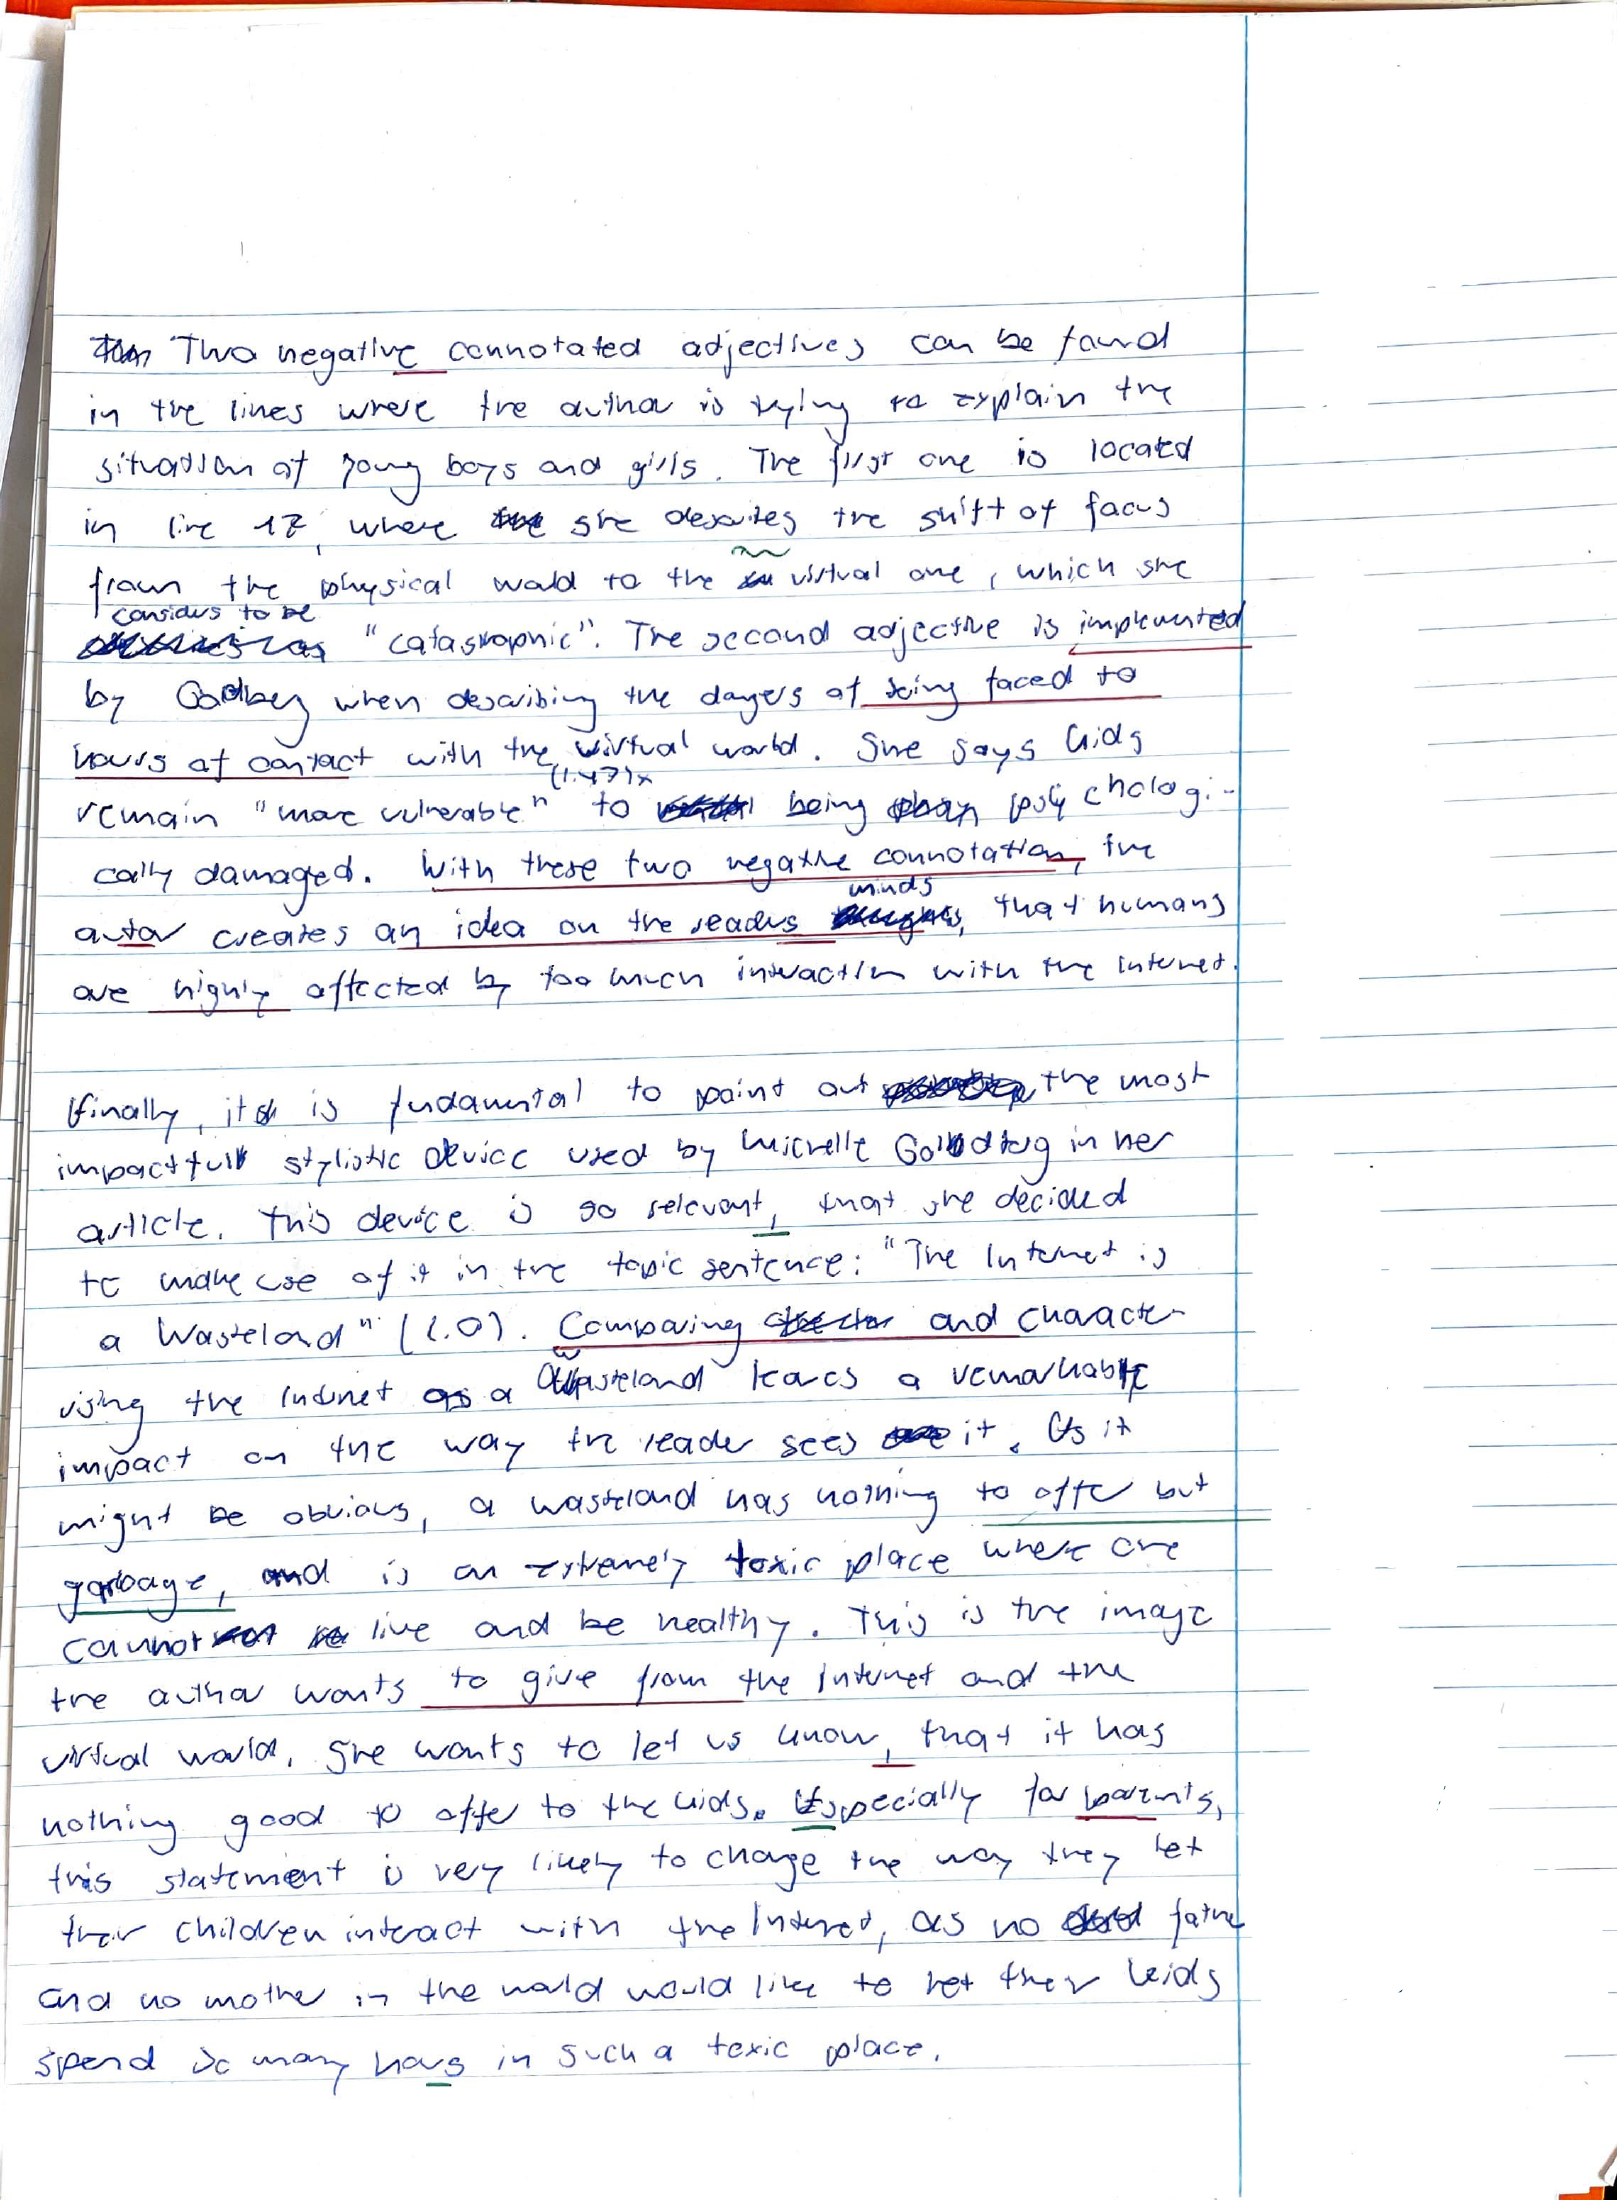 Two negative connotated adjectives can be found
in the lines where the author is trying to explain the
situation of young boys and girls. The first one is located
in line 17, where she describes the shift of focus
from the physical world to the virtual one, which she
considers to be
"catastrophic". The second adjective is implemented
by Goldberg when describing the dangers of being faced to
hours of contact with the virtual world. She says kids
(l.47)
remain "more vulnerable" to being psychologi-
cally damaged. With these two negative connotation, the
minds
autor creates an idea on the readers that humans
are highly affected by too much interaction with the Internet.
Finally, it is fundamental to point out the most
impactfull stylistic device used by Michelle Goldberg in her
article. This device is so relevant, that she decided
to make use of it in the topic sentence: "The Internet is
a Wasteland" (l.0). Comparing and character-
ising the Internet as a wasteland leaves a remarkable
impact on the way the reader sees it. As it
might be obvious, a wasteland has nothing to offer but
garbage, and is an extremely toxic place where one
cannot live and be healthy. This is the image
the author wants to give from the Internet and the
virtual world. She wants to let us know, that it has
nothing good to offer to the kids. Especially for parents,
this statement is very likely to change the way they let
their children interact with the Internet, as no father
and no mother in the world would like to let their kids
spend so many hours in such a toxic place.